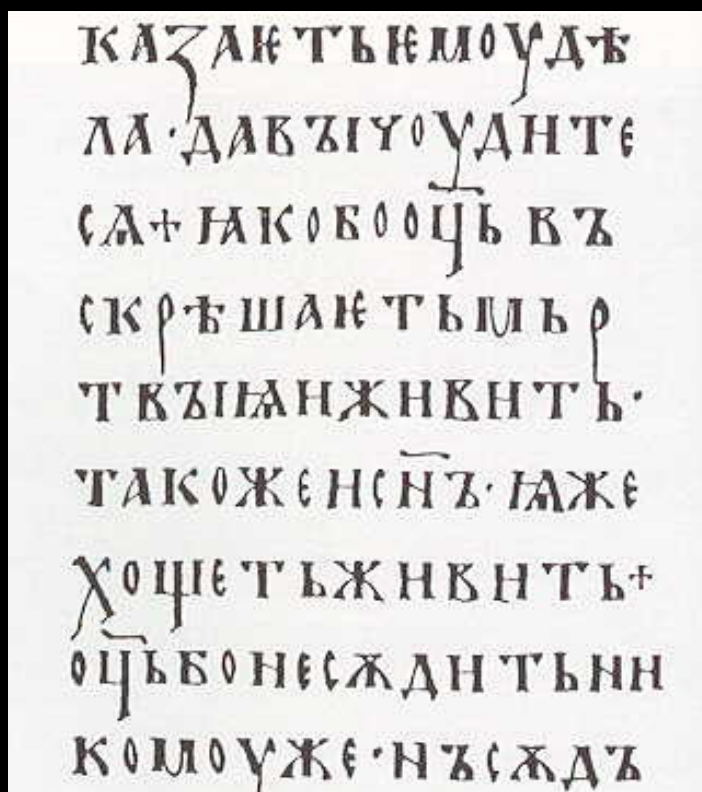 казаѥтьѥмоудѣ
ла·давꙑчоудите
сѧ+ꙗкобооц҃ьвъ
скрѣшаѥтьмьр
твꙑѩиживить·
такожеисн҃ъ·ѩже
хощетьживить+
оц҃ьбонесѫдитьни
комоуже·нъсѫдъ